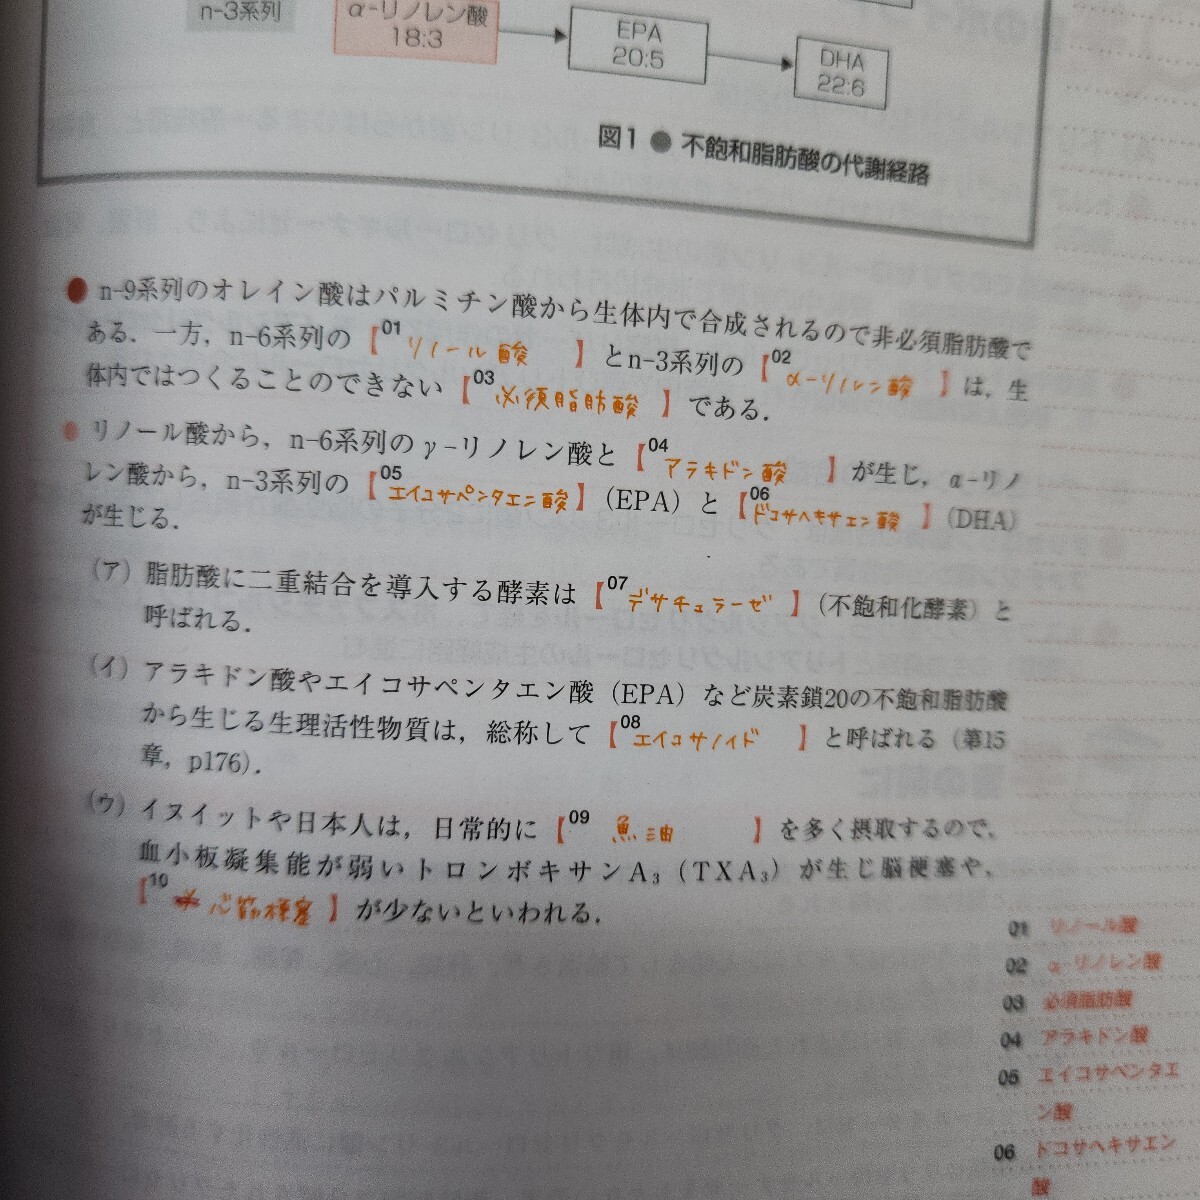 n-3系列
α-リノレン酸
18:3
EPA
20:5
DHA
22:6
図1 ● 不飽和脂肪酸の代謝経路
● n-9系列のオレイン酸はパルミチン酸から生体内で合成されるので非必須脂肪酸で
ある．一方，n-6系列の【01 リノール酸】とn-3系列の【02 α-リノレン酸】は，生
体内ではつくることのできない【03 必須脂肪酸】である．
● リノール酸から，n-6系列のγ-リノレン酸と【04 アラキドン酸】が生じ，α-リノ
レン酸から，n-3系列の【05 エイコサペンタエン酸】(EPA) と【06 ドコサヘキサエン酸】(DHA)
が生じる．
(ア) 脂肪酸に二重結合を導入する酵素は【07 デサチュラーゼ】(不飽和化酵素) と
呼ばれる．
(イ) アラキドン酸やエイコサペンタエン酸 (EPA) など炭素鎖20の不飽和脂肪酸
から生じる生理活性物質は，総称して【08 エイコサノイド】と呼ばれる (第15
章，p176)．
(ウ) イヌイットや日本人は，日常的に【09 魚油】を多く摂取するので，
血小板凝集能が弱いトロンボキサンA₃ (TXA₃) が生じ脳梗塞や，
【10 心筋梗塞】が少ないといわれる．
01 リノール酸
02 α-リノレン酸
03 必須脂肪酸
04 アラキドン酸
05 エイコサペンタエ
ン酸
06 ドコサヘキサエン
酸